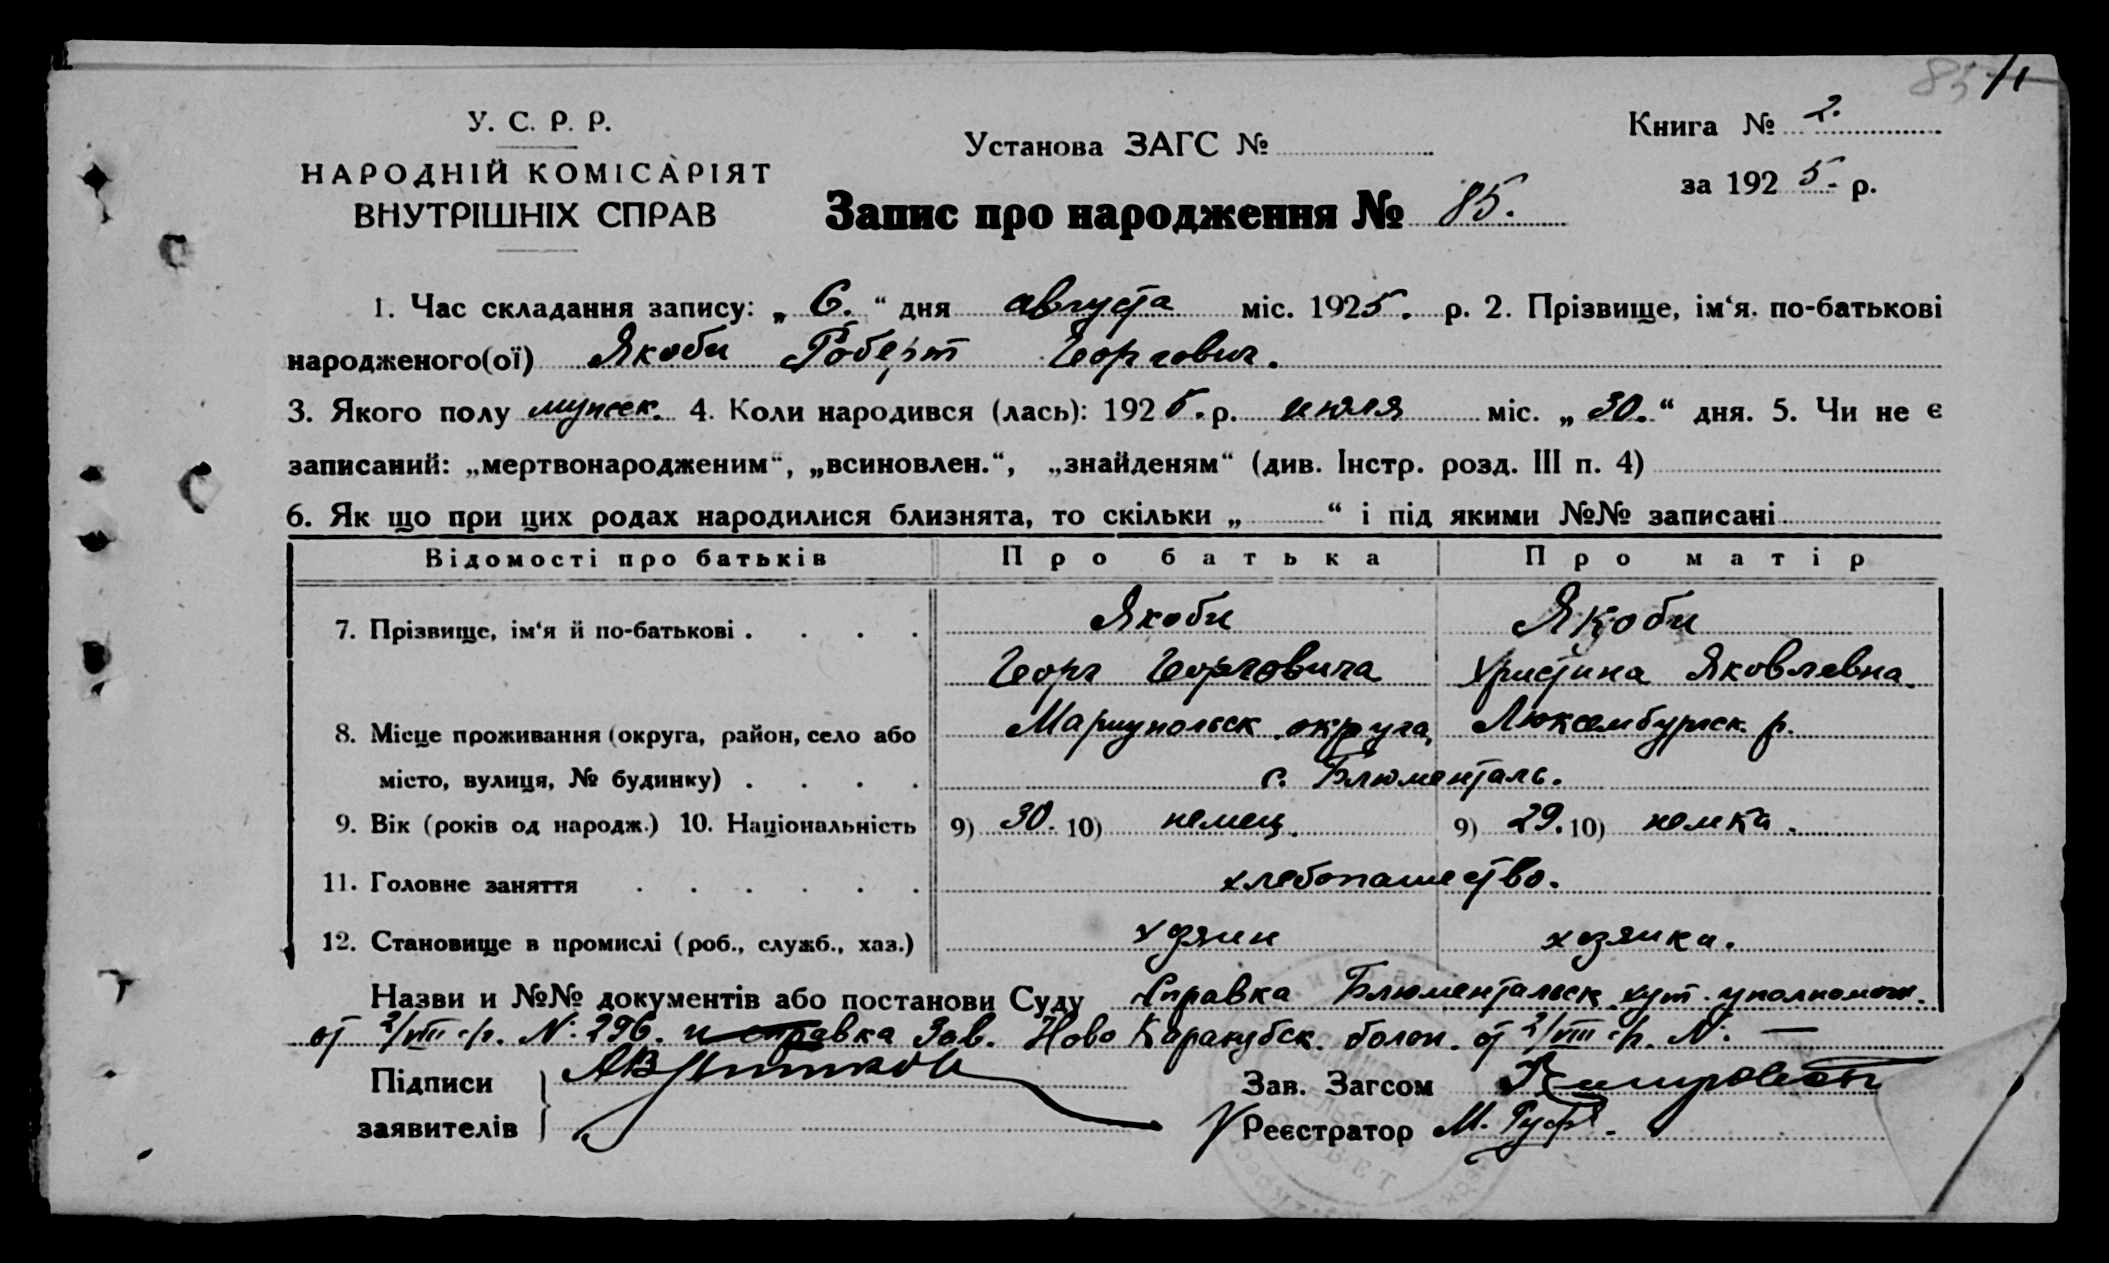 85
У. С. Р. Р.
НАРОДНІЙ КОМІСАРІЯТ
ВНУТРІШНІХ СПРАВ
Установа ЗАГС №
Запис про народження № 85.
Книга № 2.
за 1925. р.
1. Час складання запису: „ 6. “ дня августа міс. 1925. р. 2. Прізвище, ім‘я. по-батькові
народженого(ої) Якоби Роберт Георгович.
3. Якого полу мужск. 4. Коли народився (лась): 1925. р. июля міс. „ 30. “ дня. 5. Чи не є
записаний: „мертвонародженим“, „всиновлен.“, „знайденям“ (див. Інстр. розд. III п. 4)
6. Як що при цих родах народилися близнята, то скільки „ “ і під якими №№ записані
Відомості про батьків Про батька Про матір
7. Прізвище, ім‘я й по-батькові . . . . Якоби Якоби
Георг Георговича Христина Яковлевна.
8. Місце проживання (округа, район, село або Мариупольск. округа, Люксембургск. р.
місто, вулиця, № будинку) . . . . с. Блюменталь.
9. Вік (років од народж.) 10. Національність 9) 30. 10) немец. 9) 29. 10) немка.
11. Головне заняття . . . . . . хлебопашество.
12. Становище в промислі (роб., служб., хаз.) хозяин хозяика.
Назви и №№ документів або постанови Суду Справка Блюментальск. хут. уполномоч.
от 2/VIII с/г. №: 296. и справка Зав. Ново Каракубск. болон. от 2/VIII с/г. №: —
Підписи
заявителів
Зав. Загсом
Реєстратор М.